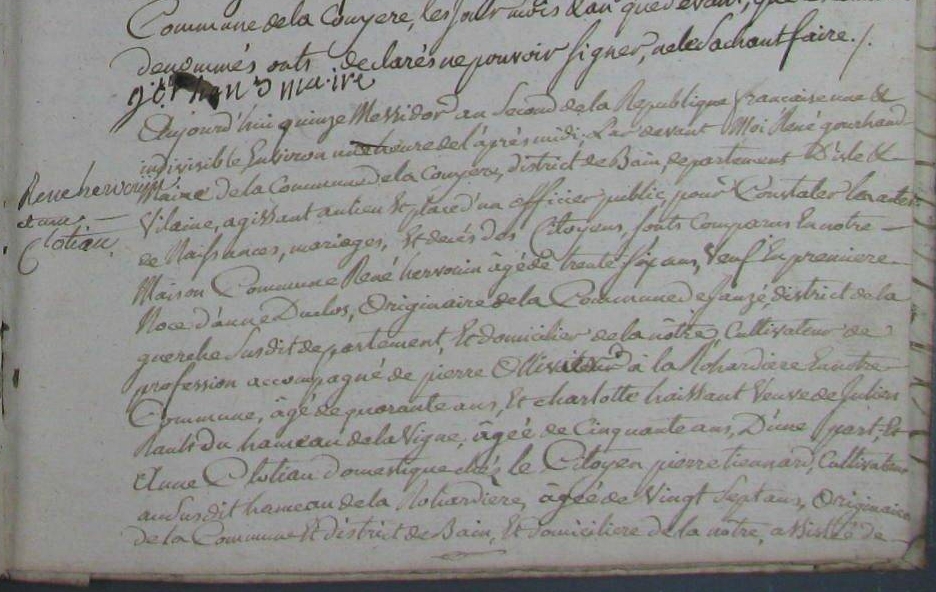 Commune de la Couyere, les jour mois & an que devant,
denommés onts declarés ne pouvoir signer, ne le sachant faire ./.
maire
Aujourd'hui quinze Messidor an Second de la Republique francaise une &
indivisible Environ une heure de l'après midi, Par devant Moi René gourhand
Maire de la Commune de la Couyere, district de Bain, departement D'isle &
Vilaine, agissant au lieu & place d'un officier public, pour Constater les actes
de Naissances, mariages, Et decés des Citoyens, sonts Comparus En notre
Maison Commune René hervouin âgé de trente six ans, Veuf En premiere
Noce d'anne Duclos, Originaire de la Commune de Janzé, district de la
guerche susdit departement, Et domicilier de la nôtre, Cultivateur de
profession accompagné de pierre à la Rohardiere En notre
Commune, âgé de quarante ans, Et charlotte haissant Veuve de Julien
Rault du hameau de la Vigne, âgée de Cinquante ans, D'une part, Et
Anne Clotiau domestique chés le Citoyen pierre tiennard, Cultivateur
au susdit hameau de la Rohardiere, âgée de Vingt Sept ans, Originaire
de la Commune & district de Bain, Et domiciliere de la notre, assistée de
Rene hervouin
et anne
Clotiau